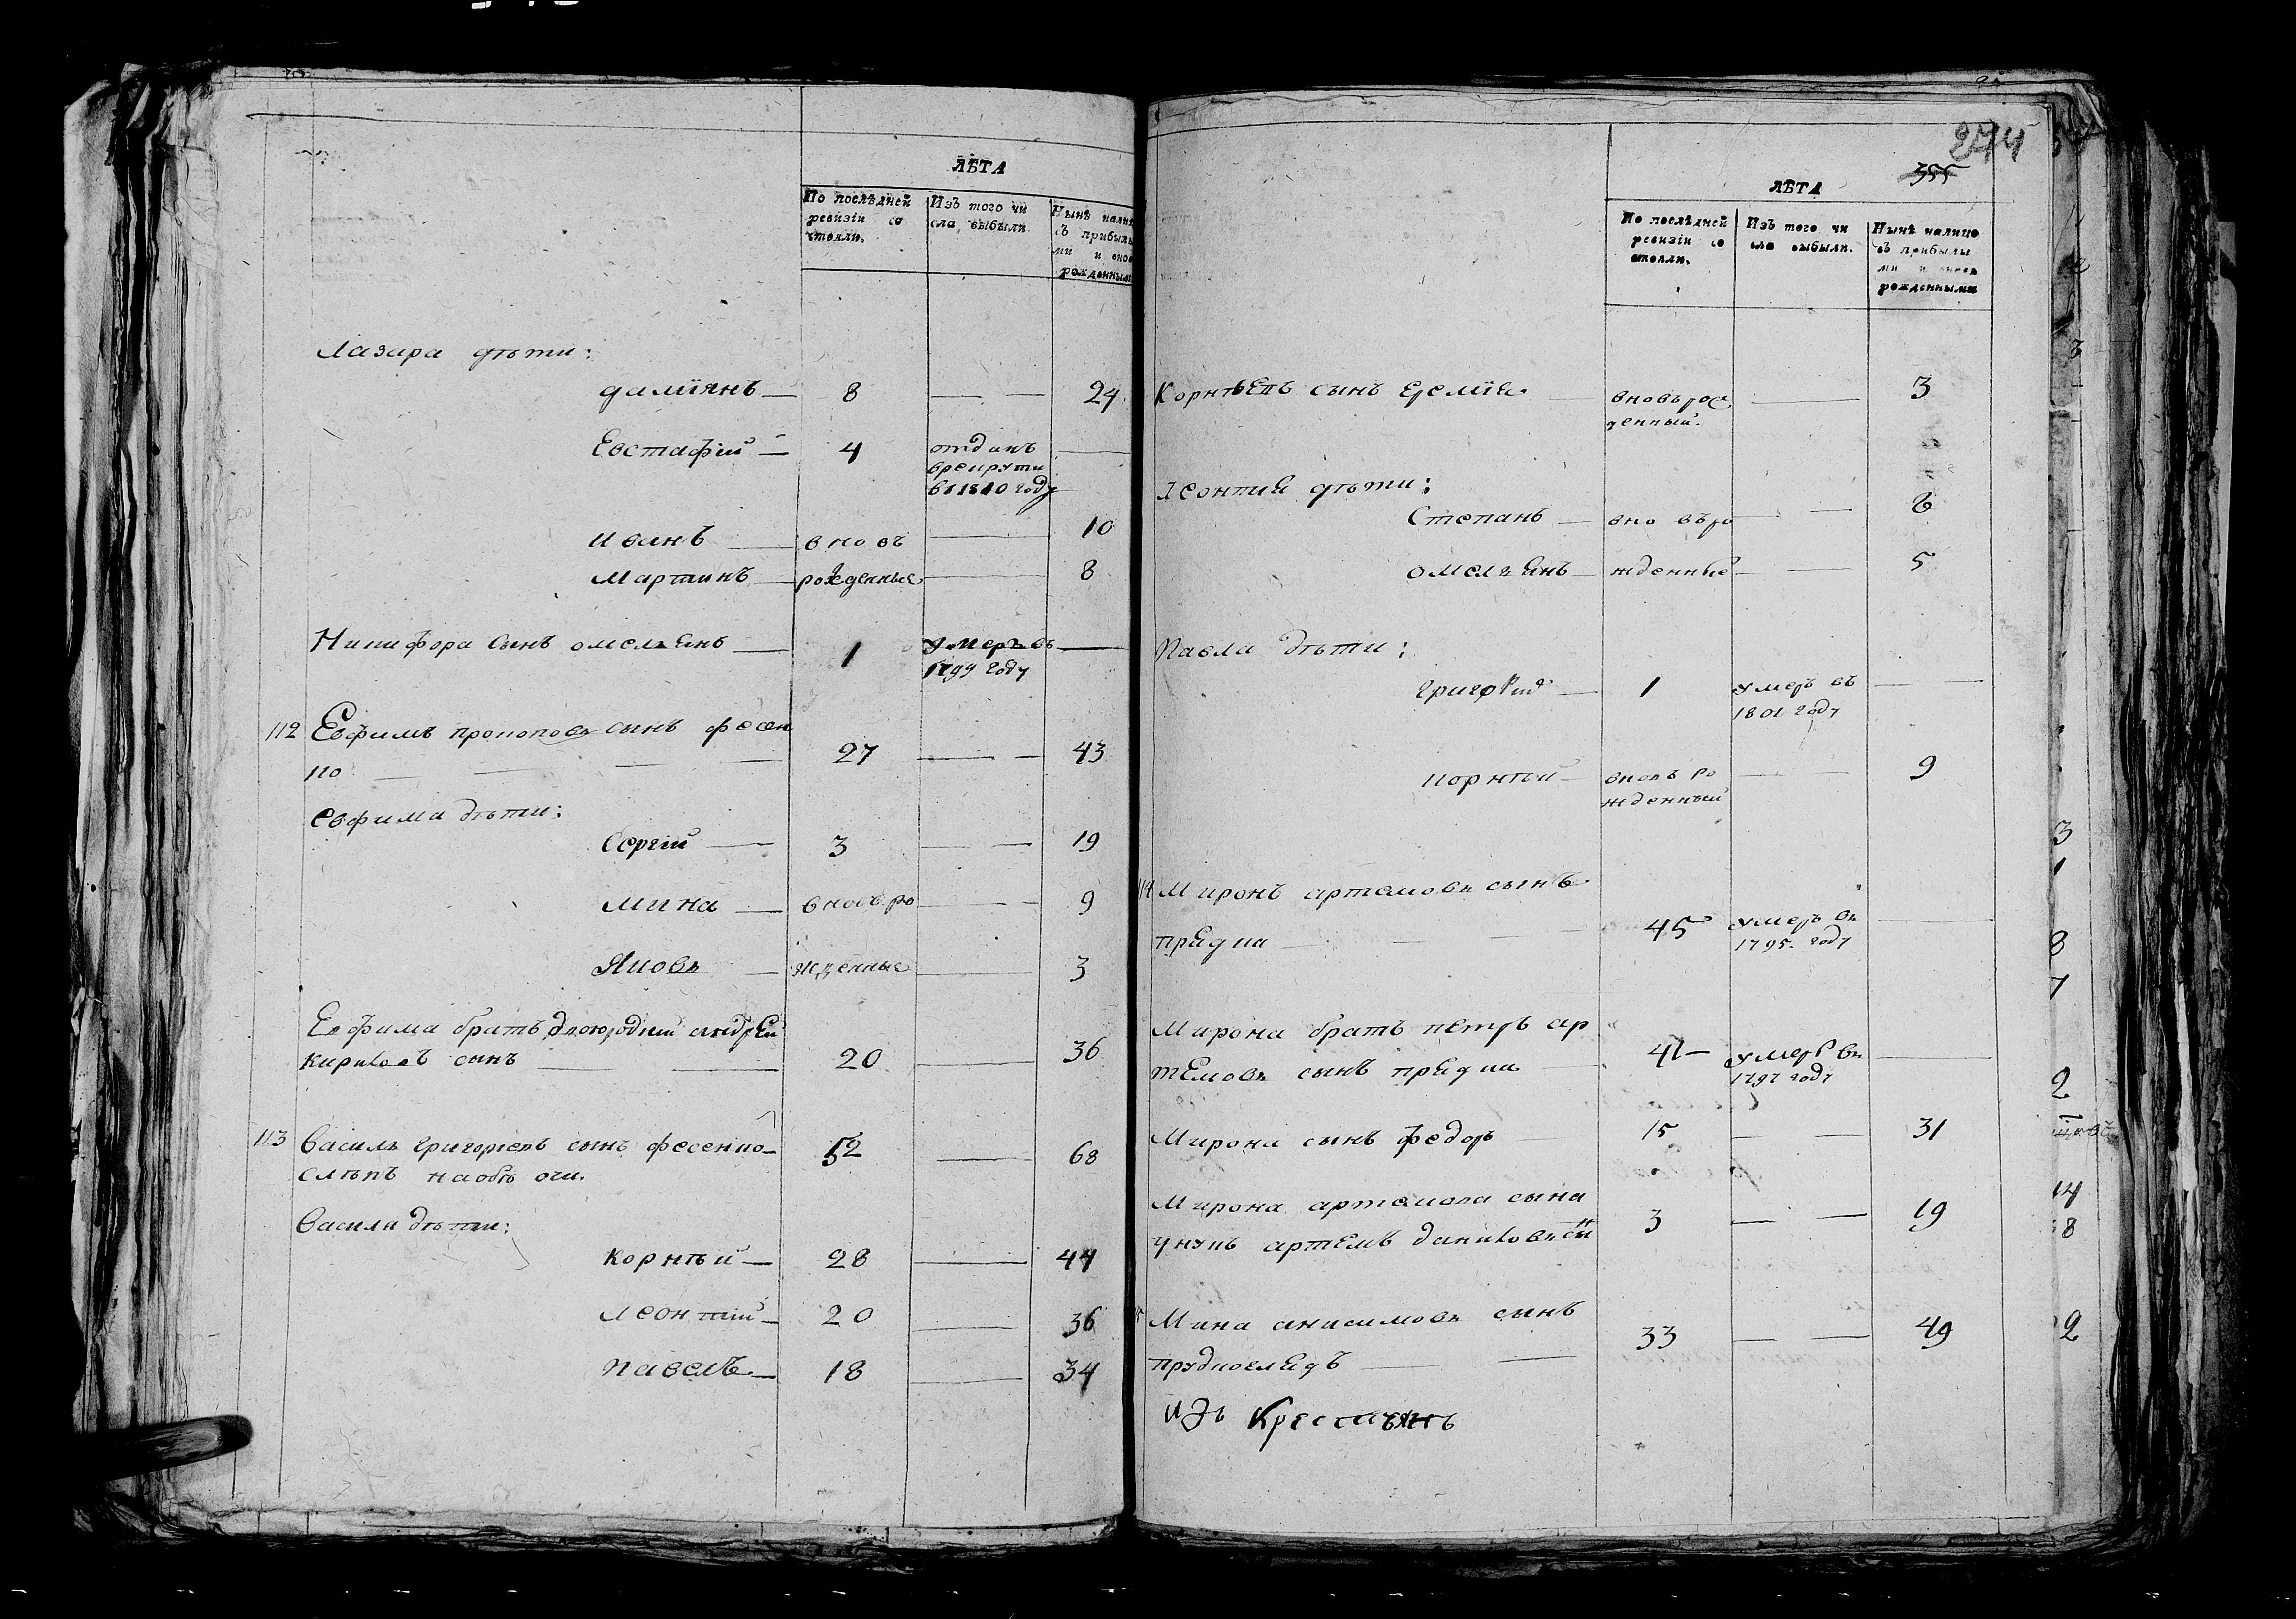 ЛѢТА
По послѣдней ревизіи со стояли.
Изъ того чи сла выбыли
Нынѣ налиц съ прибылы ми и внов рожденными
Лазара дѣти:
даміянъ — 8 — — 24
Евстафій — 4 отданъ —
врекруты
в 1810 году
иванъ — вновъ — 10
мартинъ — рожденные — 8
Никифора сынъ омелянъ — 1 умеръ въ —
1799 году
112 Евфимъ прокоповъ сынъ фесен
ко — — — — 27 — — 43
евфима дѣти:
Сергій — 3 — — 19
мина — вновъ ро — — 9
Яковъ — жденные — 3
Евфима братъ двоюродній андрей
кириловъ сынъ — — 20 — 36
113 василь григоріевъ сынъ фесенко — 52 — 68
слѣпъ на обѣ очи.
василя дѣти:
корнѣй — 28 — 44
леонтій — 20 — 36
павелъ — 18 — 34
274
355
ЛѢТА
По послѣдней ревизіи со стояли.
Изъ того чи сла выбыли.
Нынѣ налицо съ прибылы ми и вновь рожденными
Корнѣевъ сынъ еремія — вновърож — 3
денный.
леонтія дѣти:
Степанъ — вно въро — — 6
омелянъ — жденные — — 5
Павла дѣти:
григорій — 1 умеръ въ — —
1801 году
корнѣй — вновъ ро — — 9
жденный
114 Миронъ артемовъ сынъ
прядка — — 45 умеръ въ —
1795. году
Мирона братъ петръ ар
темовъ сынъ прядка — 41 — умеръ въ —
1797 году
Мирона сынъ федоръ — 15 — — 31
Мирона артемова сына
унукъ артемъ даниловъ сы 3 — — 19
Мина анисимовъ сынъ
прудкоглядъ — — 33 — — 49
изъ Крестьянъ